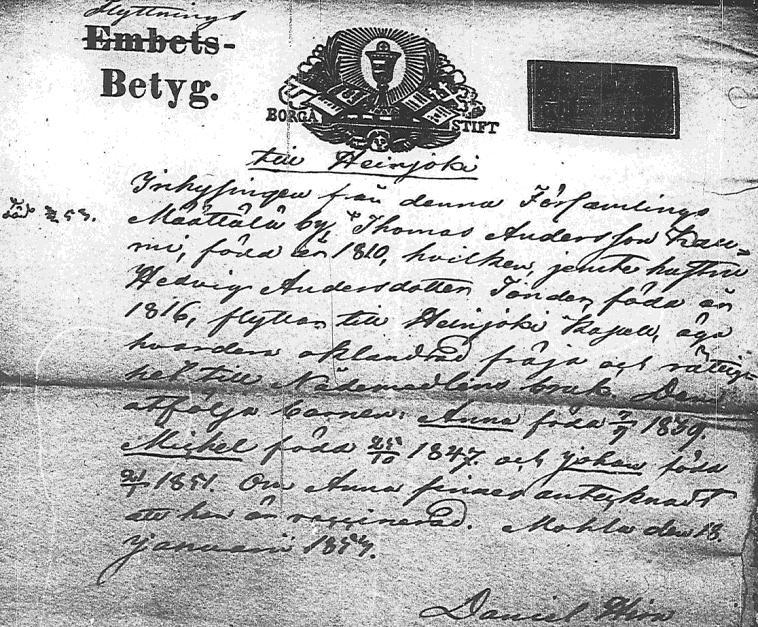 Flyttnings
Embets-
Betyg.
BORGÅ STIFT
till Heinjoki
Inhysingen från denna Församlings
Määttälä by, Thomas Andersson Kau-
mi, född år 1810, hvilken, jemte hustru
Hedvig Andersdotter född år
1816, flyttar till Heinjoki Kapell, äga
hvardera oklandrad fräjd och rättig-
het till Nådemedlens bruk. Dem
åtfölja barnen: Anna född 1839.
Mikel född 25/10 1847. och Johan född
1851. Om Anna finnes antecknadt
att hon är vaccinerad. Mohla den 18
Januari 1857.
Daniel